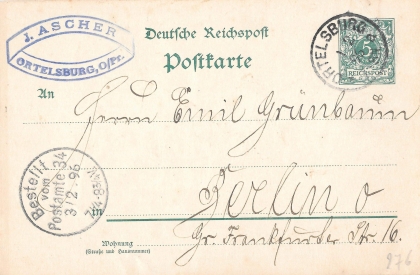 J. ASCHER
ORTELSBURG, O/Pr.
Deutsche Reichspost
Postkarte
ORTELSBURG
5
REICHSPOST
An
Herrn Emil Grünbaum
Bestellt
vom
Postamte 34
3/2 95
in Berlin O
Gr. Frankfurter Str. 16.
Wohnung
(Straße und Hausnummer)
976